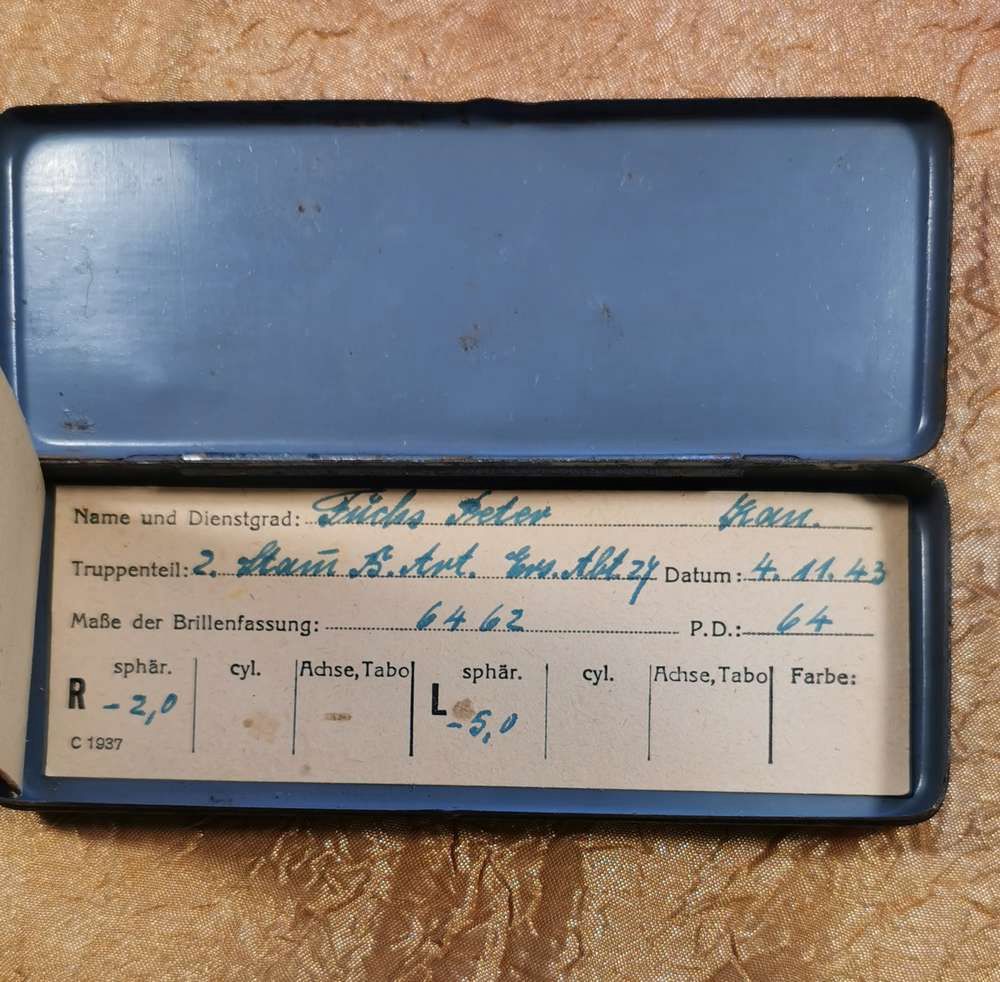 Name und Dienstgrad: Fuchs Peter Kan.
Truppenteil: 2. Stam B. Art. Ers. Abt. 27 Datum: 4. 11. 43
Maße der Brillenfassung: 64 62 P.D.: 64
sphär. cyl. Achse, Tabo sphär. cyl. Achse, Tabo Farbe:
R -2,0 L -5,0
C 1937